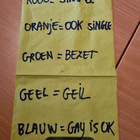 ROOD = SINGLE
ORANJE = OOK SINGLE
GROEN = BEZET
GEEL = GEIL
BLAUW = GAY IS OK